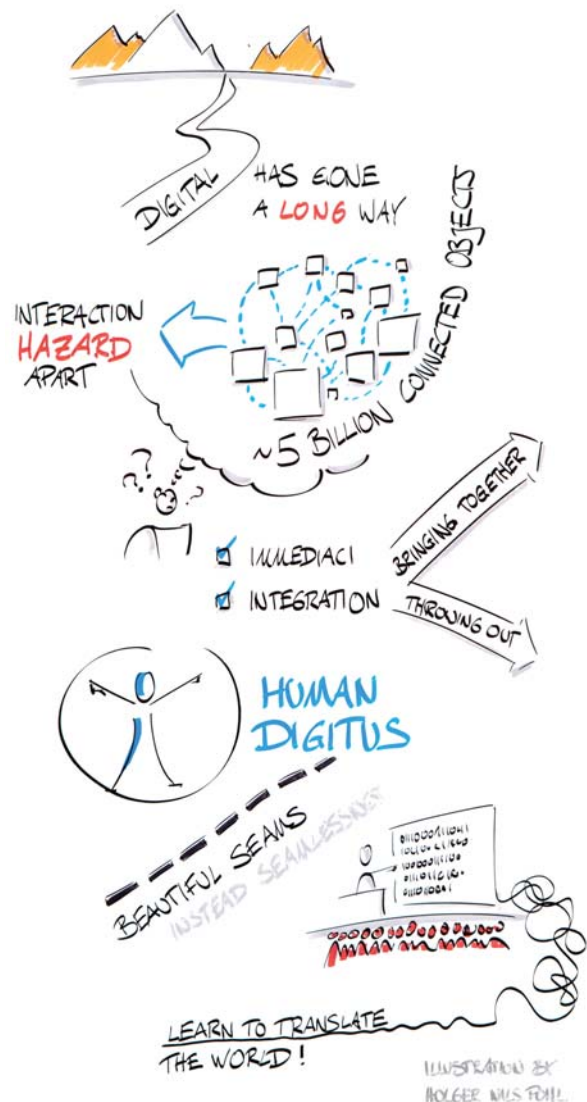 DIGITAL
HAS GONE
A LONG WAY
INTERACTION
HAZARD
APART
~5 BILLION CONNECTED OBJECTS
???
?
IMMEDIACI
INTEGRATION
BRINGING TOGETHER
THROWING OUT
HUMAN
DIGITUS
BEAUTIFUL SEAMS
INSTEAD SEAMLESSNESS
LEARN TO TRANSLATE
THE WORLD!
ILLUSTRATION BY
HOLGER NILS POHL